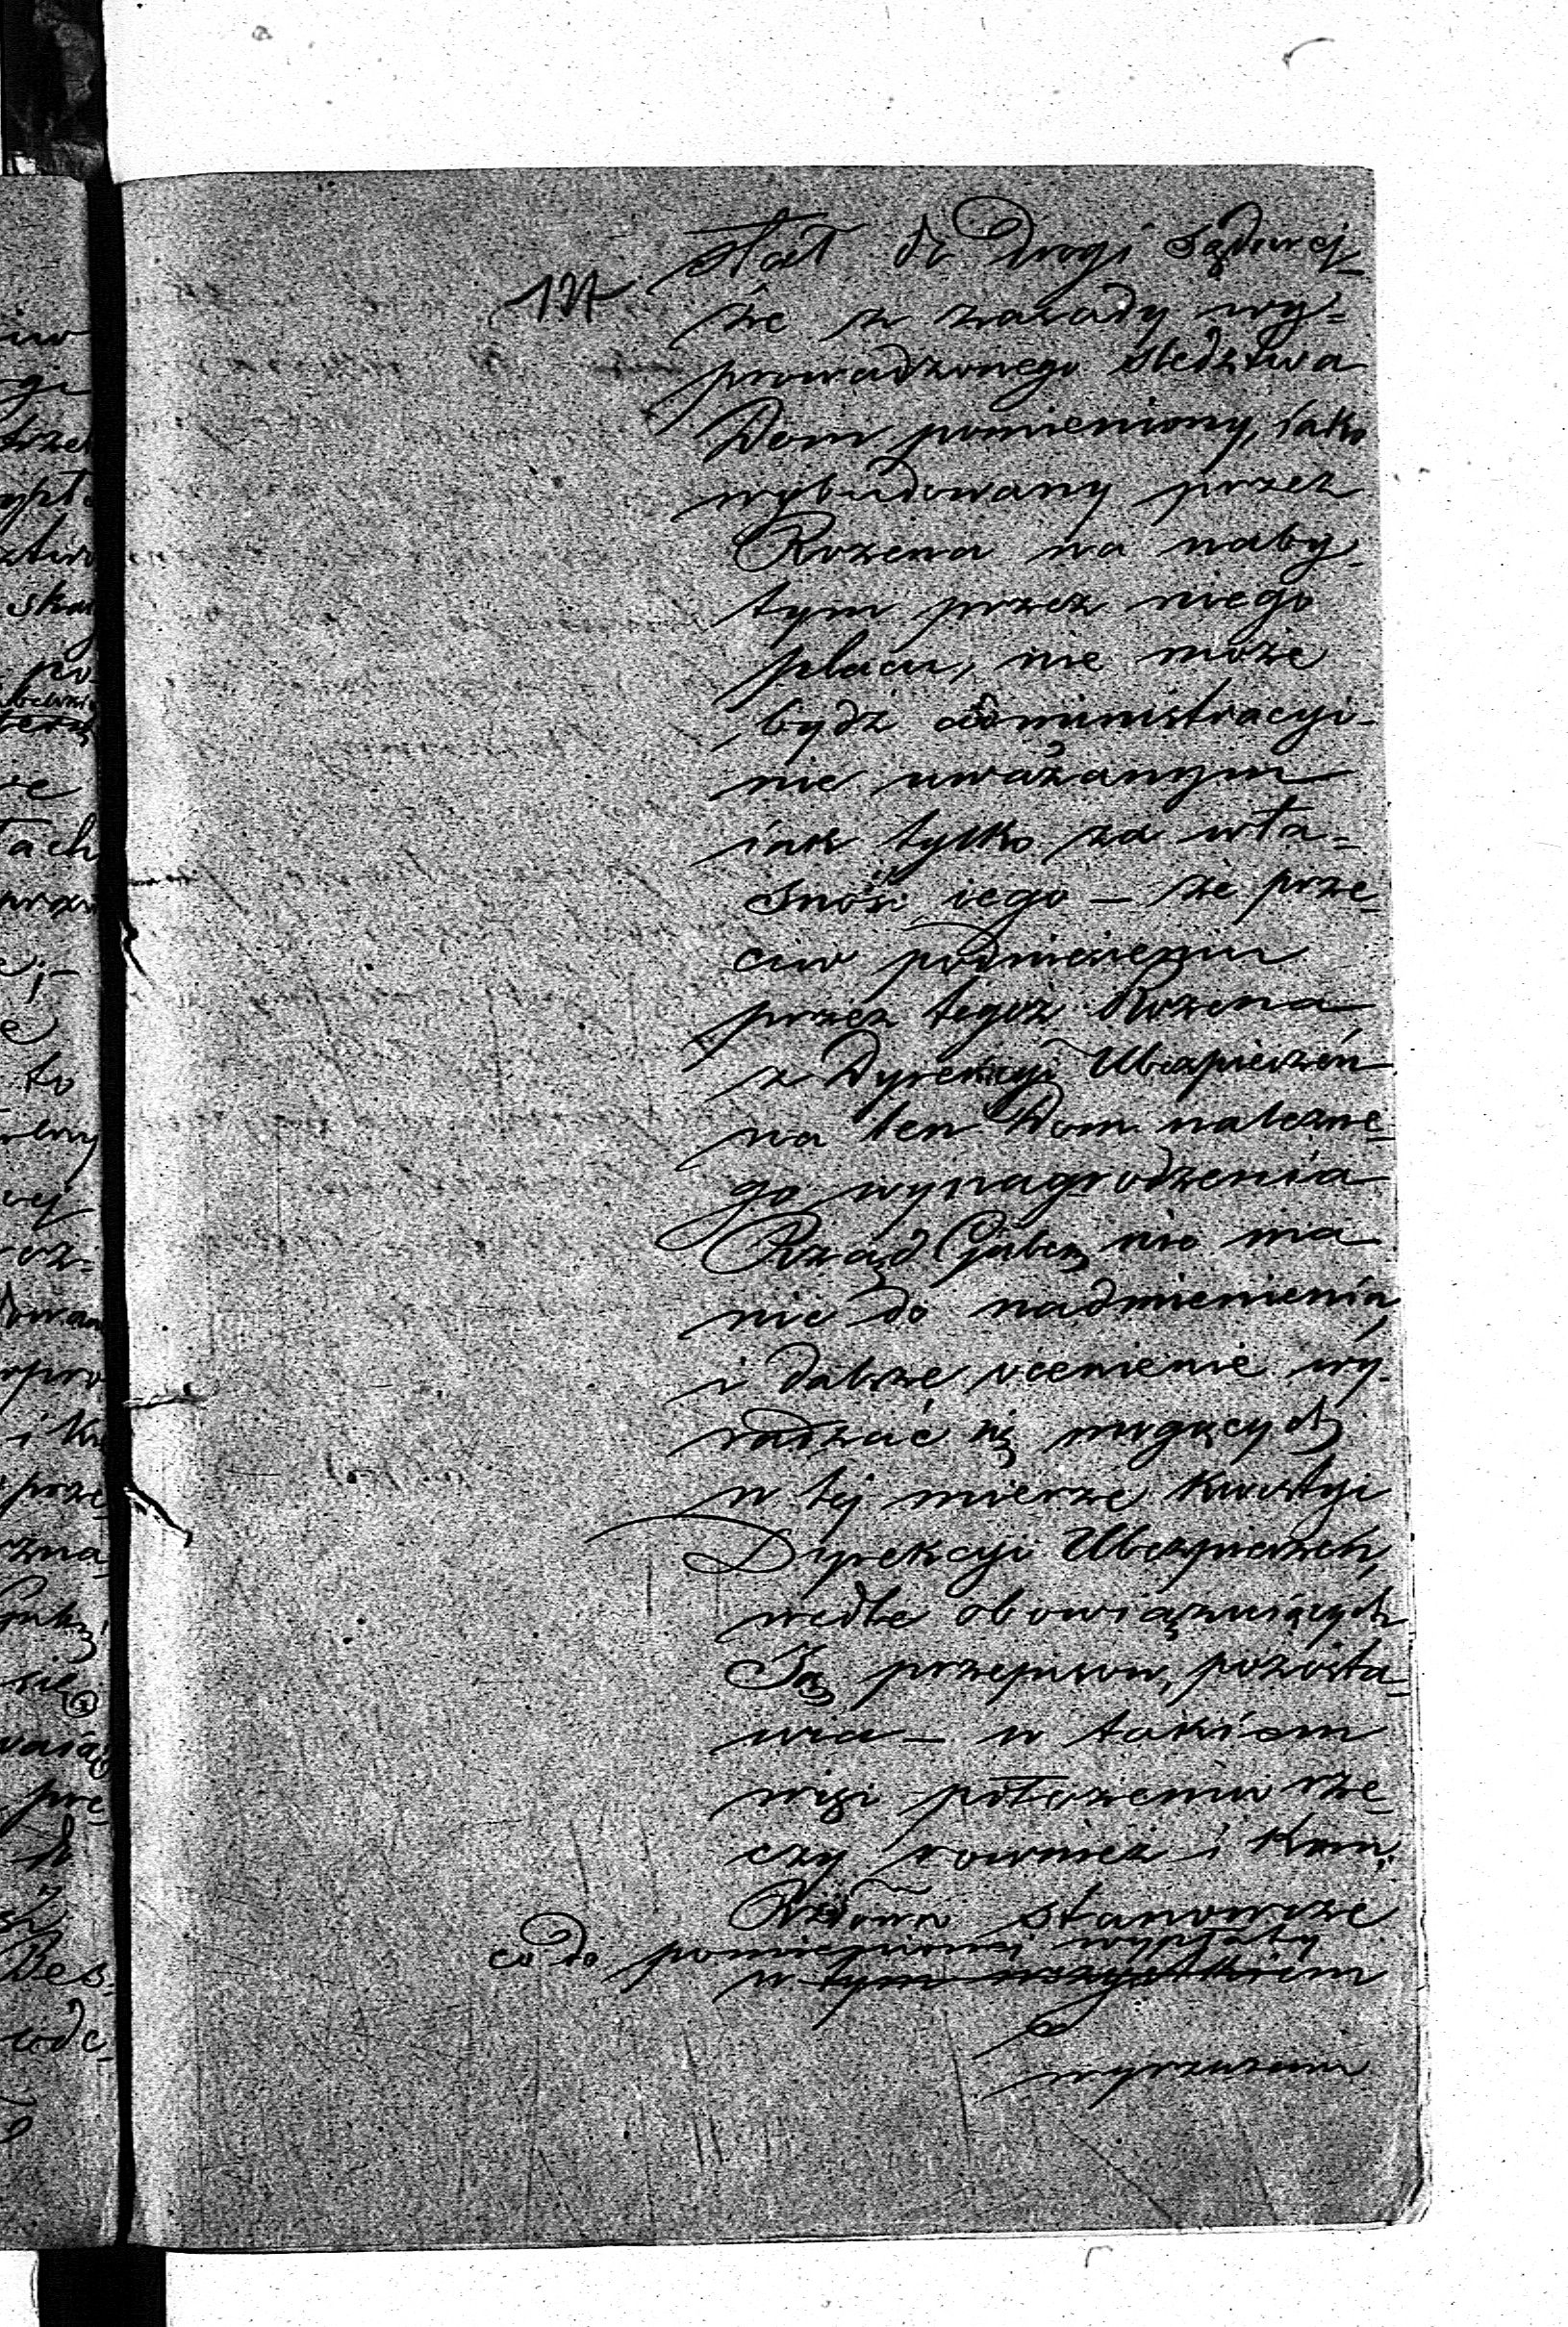 127
stał do Drogi Sądowej
że z zasady wy=
prowadzonego śledztwa
Dom pomieniony, iako
wybudowany przez
Rozena na naby-
tym przez niego
placu, nie może
bydź administracyi-
nie uważanym
iak tylko za wła-
sność iego – że prze-
ciw podniesieniu
przez tegoż Rozena
z Dyrekcyi Ubezpieczeń
na ten Dom należne-
go wynagrodzenia
Rząd Gub: nie ma
nic do nadmienienia,
i dalsze ocenienie wy-
radzać się mogących
w tej mierze kwestyi
Dyrekcyi Ubezpieczeń,
wedle obowiązuiących
Ją przepisow, pozosta-
wia – w takiem
więc położeniu rze-
czy rownież i Kom:
Rządowa stanowcze
co do pomienionej wypłaty
w tym wszystkiem
wyrzeczenie